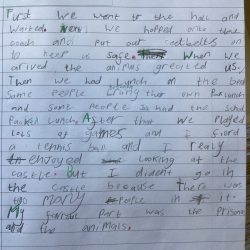 First we went to the hall and
Waited. we hopped onto the
coach and Put our setbelts on
to keep us safe. When we
arived the animals greeted us.
Then we had Lunch in the
Some People bring their own Lunch
and some People so had the school
Packed Lunch After that we Played
Lots at games and I found
a tennis ball and I realy
enjoyed looking at the
castle. But I dident go in
the castle because there was
too many People in it.
My favroute Part was the Prison
and the animals.